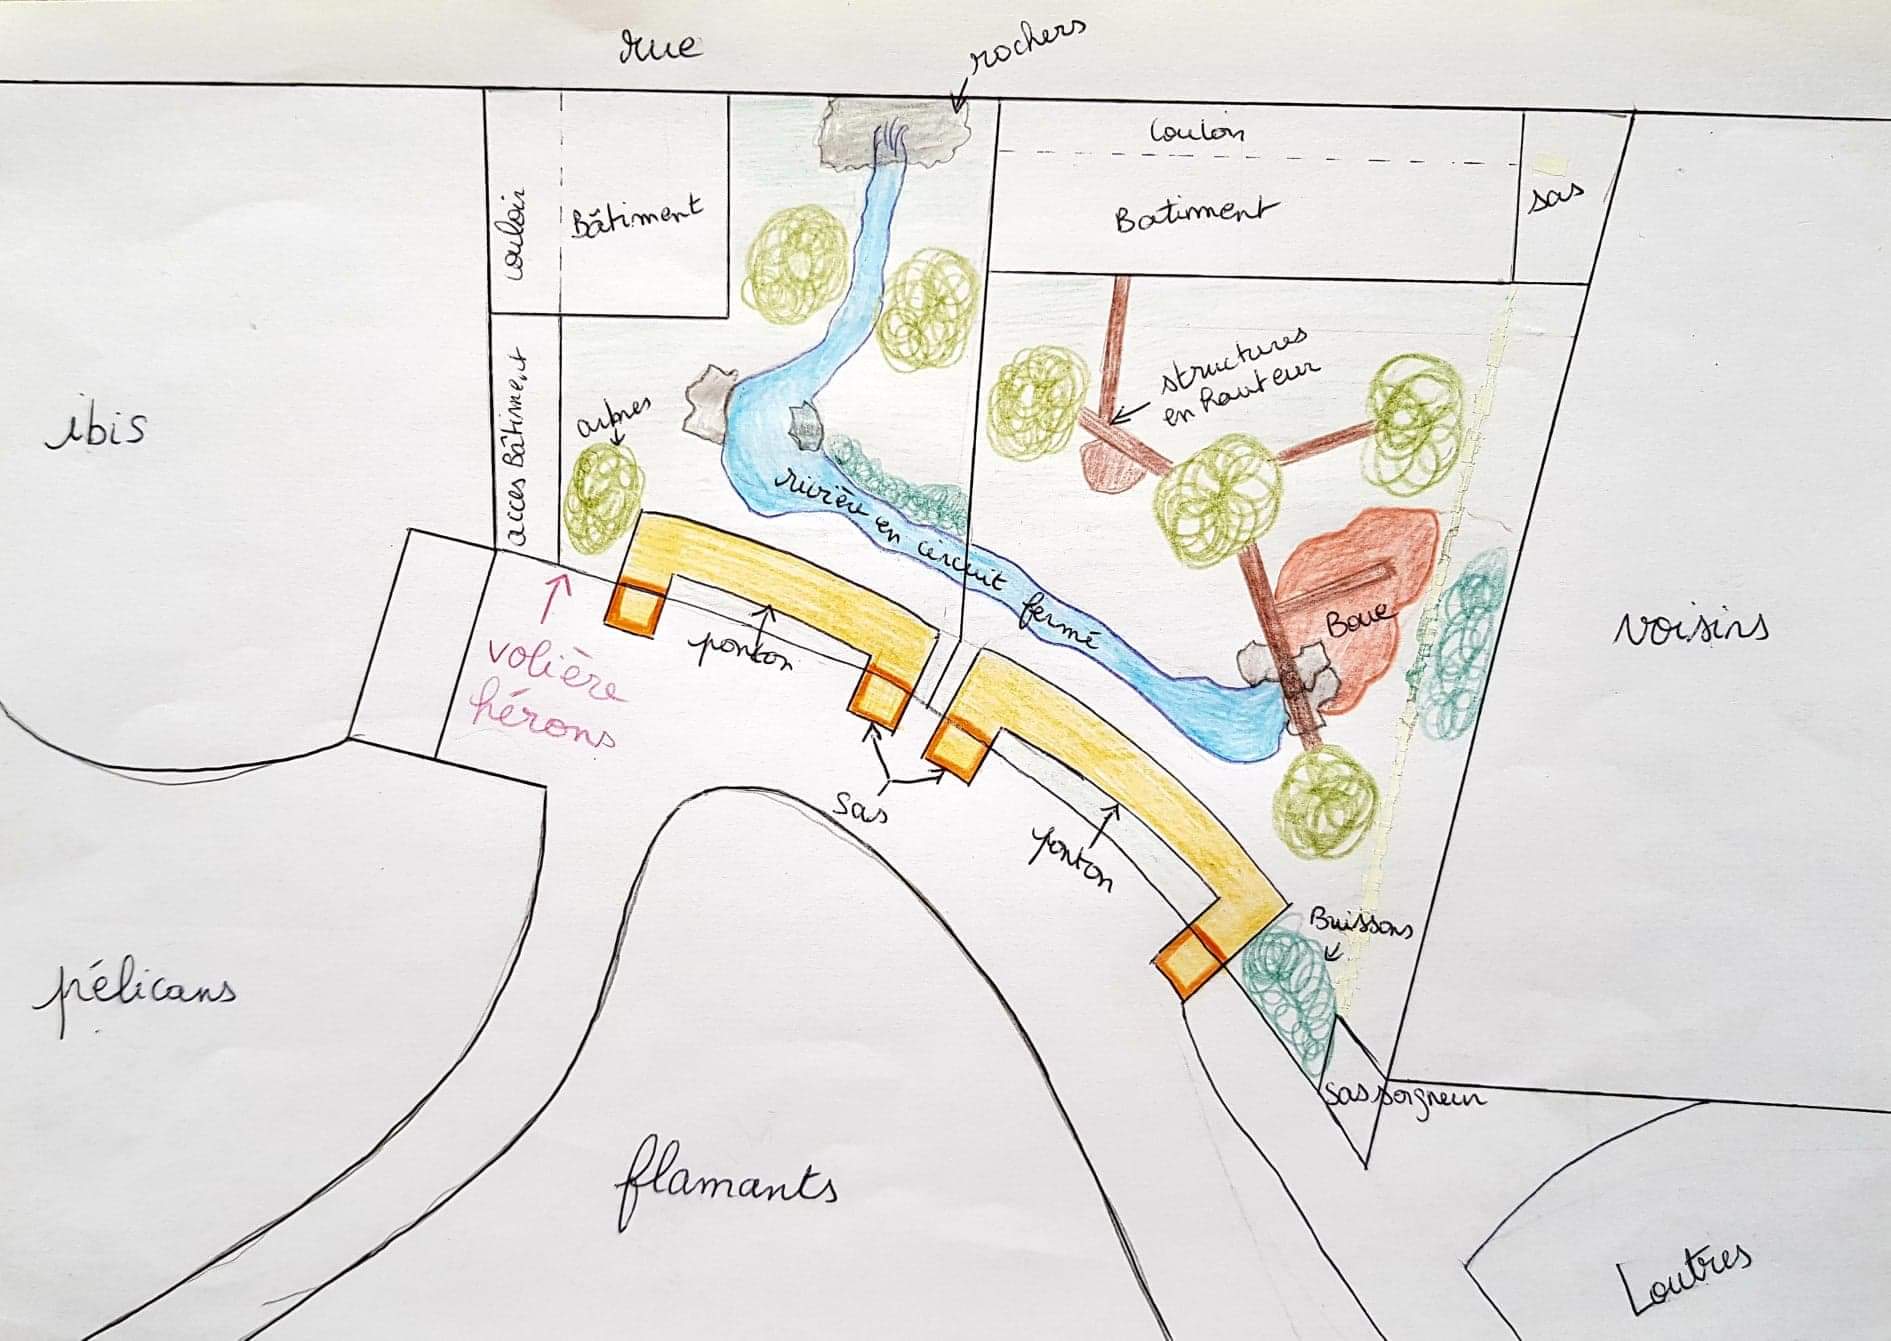 rue
rochers
couloir
Bâtiment
Couloir
Batiment
sas
accès Bâtiment
ibis
arbres
structures
en hauteur
rivière en circuit fermé
Boue
voisins
volière
hérons
ponton
sas
ponton
Buissons
pélicans
sas soigneur
flamants
Loutres